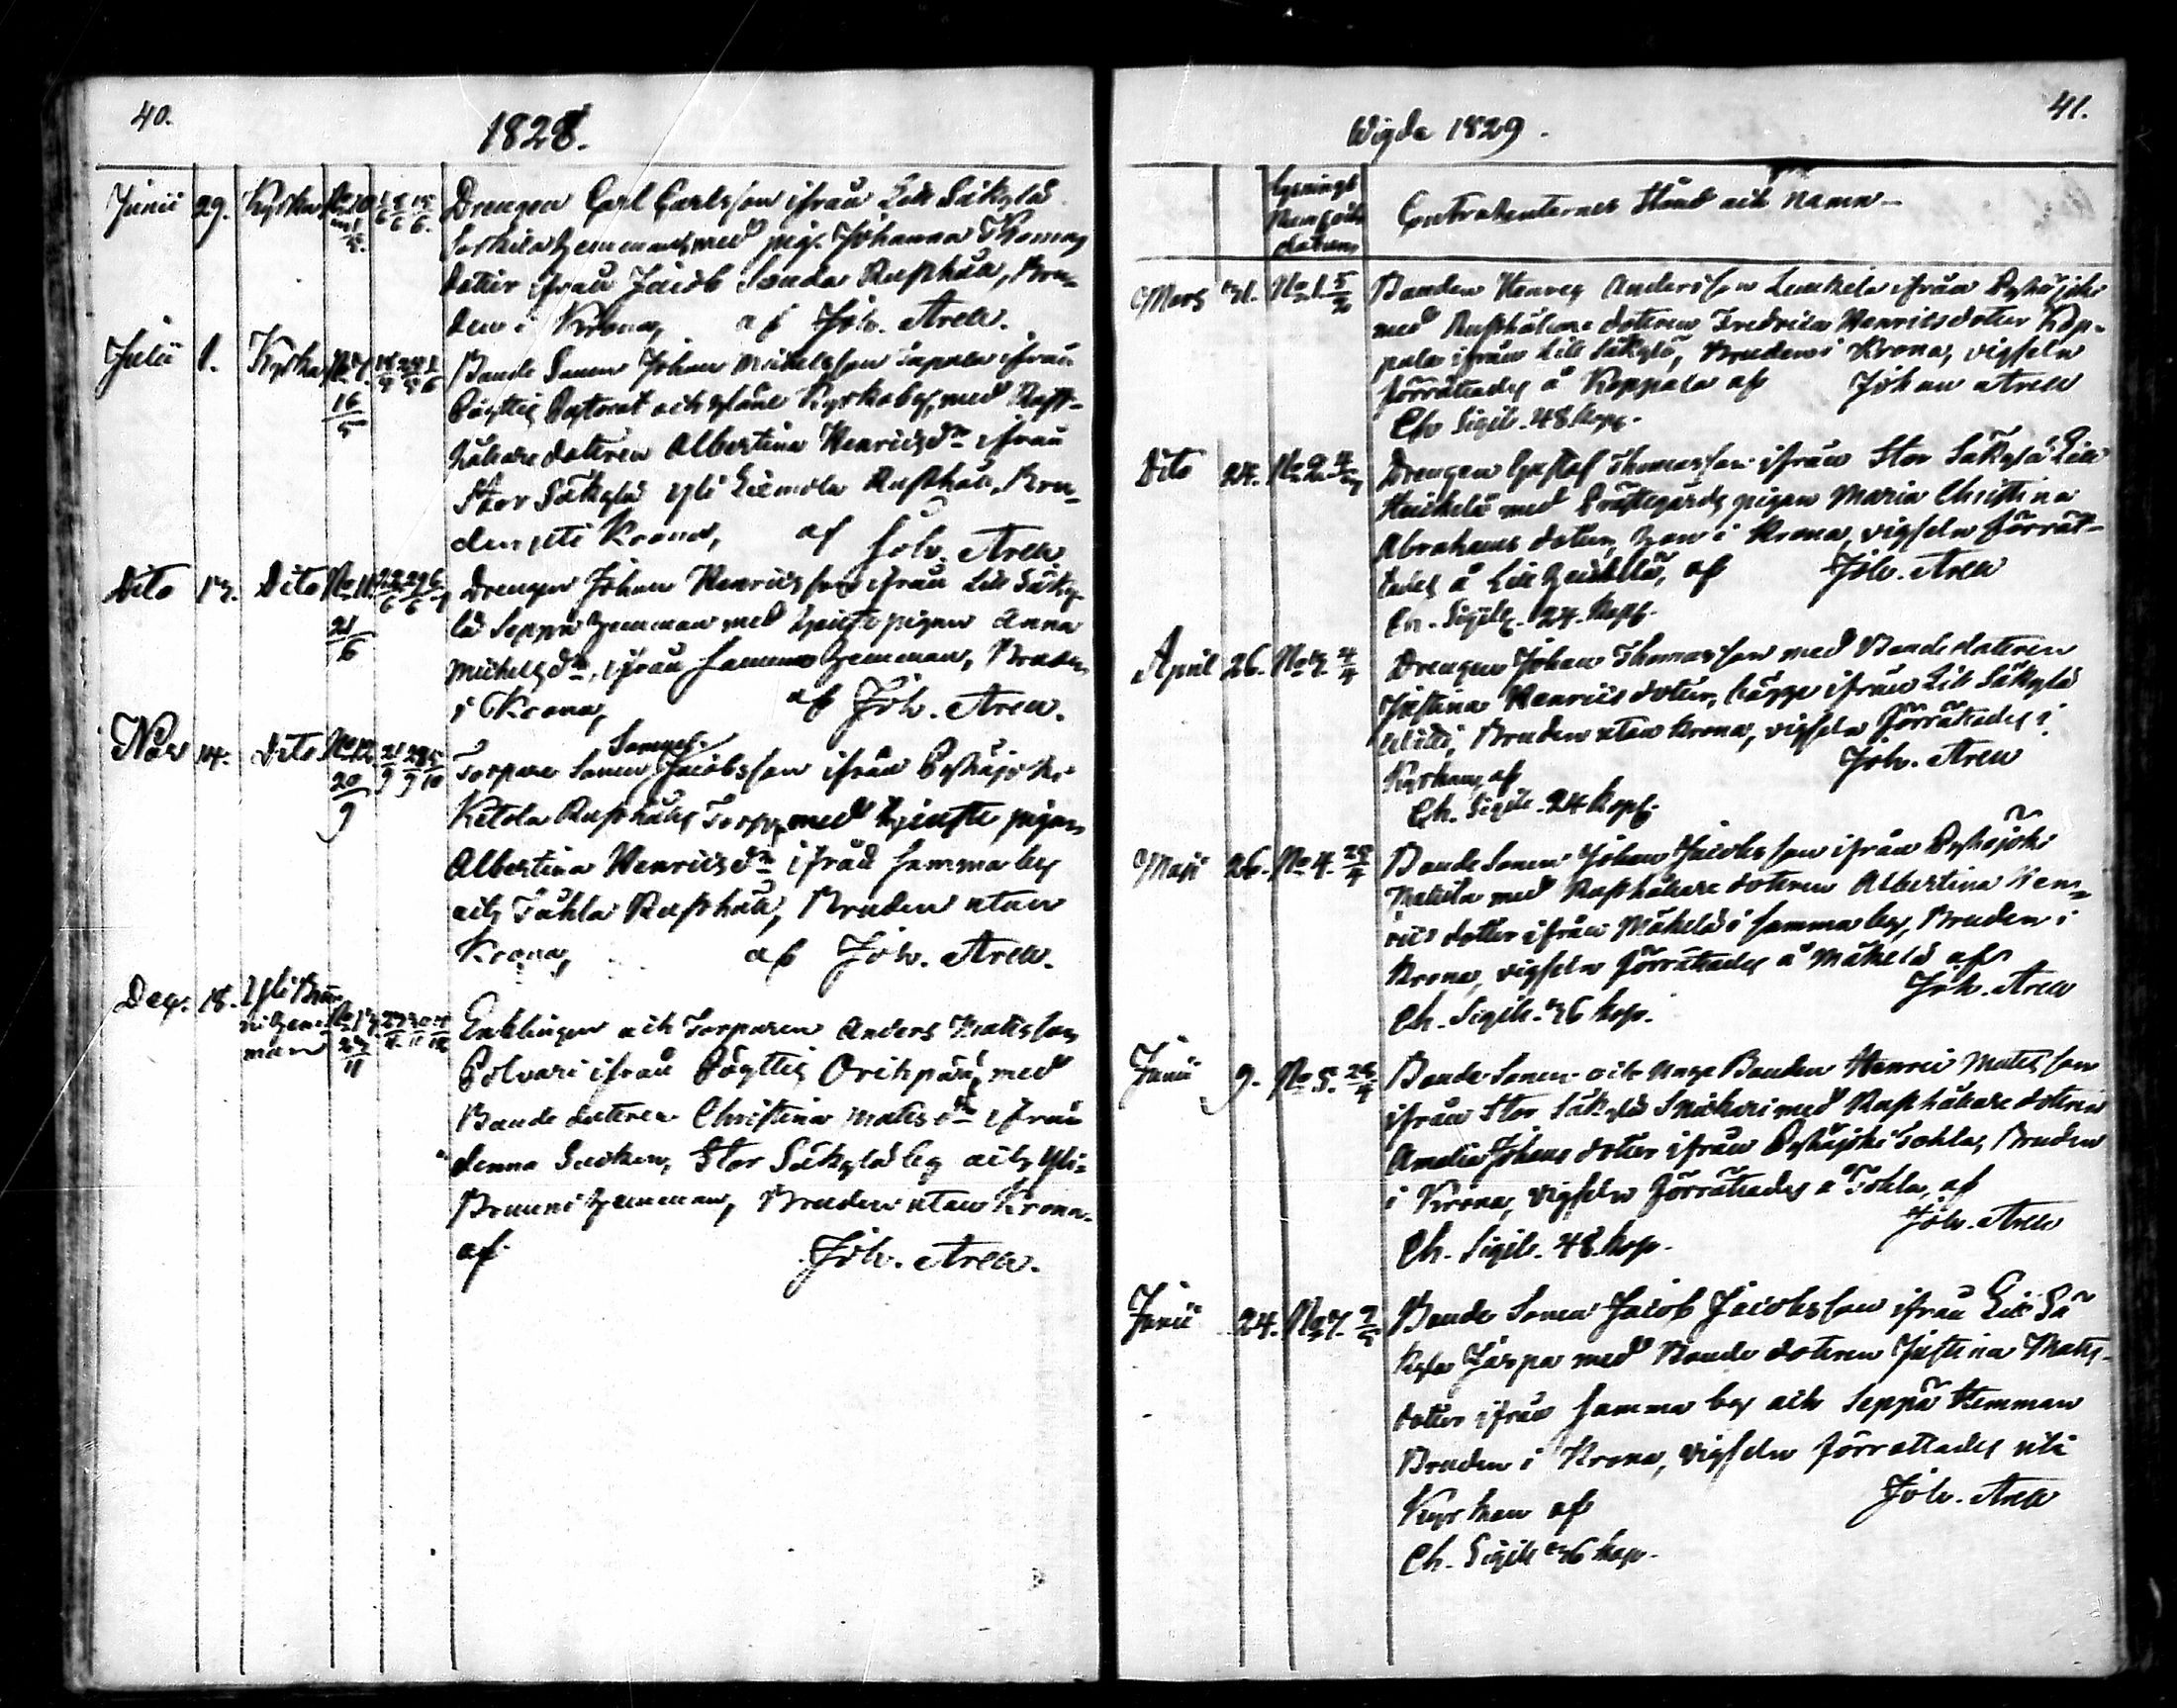 40.
1828.
Junii 29. Kyrka No 10 Drengen Carl Carlsson ifrån Lill Säkylä
hemman, med pig. Johanna Thomas
dotter ifrån Jacob Rusthåll, Bru-
den i Krona, af Joh. Aren.
Julii 1. Kyrka No 7. 16/5 Bonde Sonen Johan Michelsson ifrån
Pöyttis Pastorat och Kyrkoby, med Rust-
hållare dotteren Albertina Henricsdr ifrån
Stor Säkylä Rusthåll, Bru-
den uti Krona, af Joh. Aren
Dito 13. Dito No 11 21/6 Drengen Johan Henricsson ifrån Lill Säky-
lä Seppä hemman med tjenste pigan Anna
Michelsdr, ifrån samma hemman, Bruden
i Krona, af Joh. Aren.
Nov 14. Dito No 12 20/9 21/9 28/9 5/10 Torpare Sonen Samuel Jacobsson ifrån Pyhäjoki
Kitola Rusthålls Torp, med tjenste pigan
Albertina Henricsdr ifrån samma by
och Rusthåll, Bruden utan
Krona, af Joh. Aren.
Dec. 18. Ylli Brun-
ni hem-
man No 13 22/11 Enklingen och Torparen Anders Matsson
Polvari ifrån Pöyttis Oripää, med
Bonde dotteren Christina Matsdr ifrån
denna Socken, Stor Säkylä by och Yli-
Brunni hemman, Bruden utan Krona.
af Joh. Aren.
41.
Wigde 1829.
Lysnings
datum Contrahenternes Stånd och Namn
Mars 31. No 1 Bonden Henric Andersson ifrån Pyhäjoki
med Rusthållare dotteren Fredrica Henricsdotter Kop-
pala ifrån Lill Säkylä, Bruden i Krona, vigseln
förrättades å Koppala af Johan Aren
Ch. Sigill. 48 kop.
Dito 24. No 2 Drengen Gustaf Thomasson ifrån Stor Säkylä Lill
Heikilä med Prästegårds pigan Maria Christina
Abrahams dotter, hon i Krona, vigseln förrät-
tades å Lill Heikkilä, af Joh. Aren
Ch. Sigill. 24. kop.
April 26. No 3. 4/4 Drengen Johan Thomasson med Bonde dotteren
Justina Henrics dotter, bägge ifrån Lill Säkylä
Bruden utan Krona, vigseln förrättades i
Kyrkan, af Joh. Aren
Ch. Sigill. 24 kop.
Maji 26. No 4. Bonde Sonen Johan Jacobsson ifrån Pyhäjoki
Mattila med Rusthållare dotteren Albertina Hen-
rics dotter ifrån Mäkelä i samma by, Bruden i
Krona, vigseln förrättades å Mäkelä af
Joh. Aren
Ch. Sigill. 36 kop.
Junii 9. No 5. Bonde Sonen och Unge Bonden Henric Matsson
ifrån Stor Säkylä med Rusthållare dotteren
Amalia Johans dotter ifrån Pyhäjoki Tohla, Bruden
i Krona, vigseln förrättades å Tohla, af
Joh. Aren
Ch. Sigill. 48. kop.
Junii 24. No 7. Bonde Sonen Jacob Jacobsson ifrån Lill Sä
kylä Jaspa med Bonde dotteren Justina Mats-
dotter ifrån samma by och Seppä Hemman
Bruden i Krona, vigseln förrättades uti
Kyrkan af Joh. Aren
Ch. Sigill 36 kop.